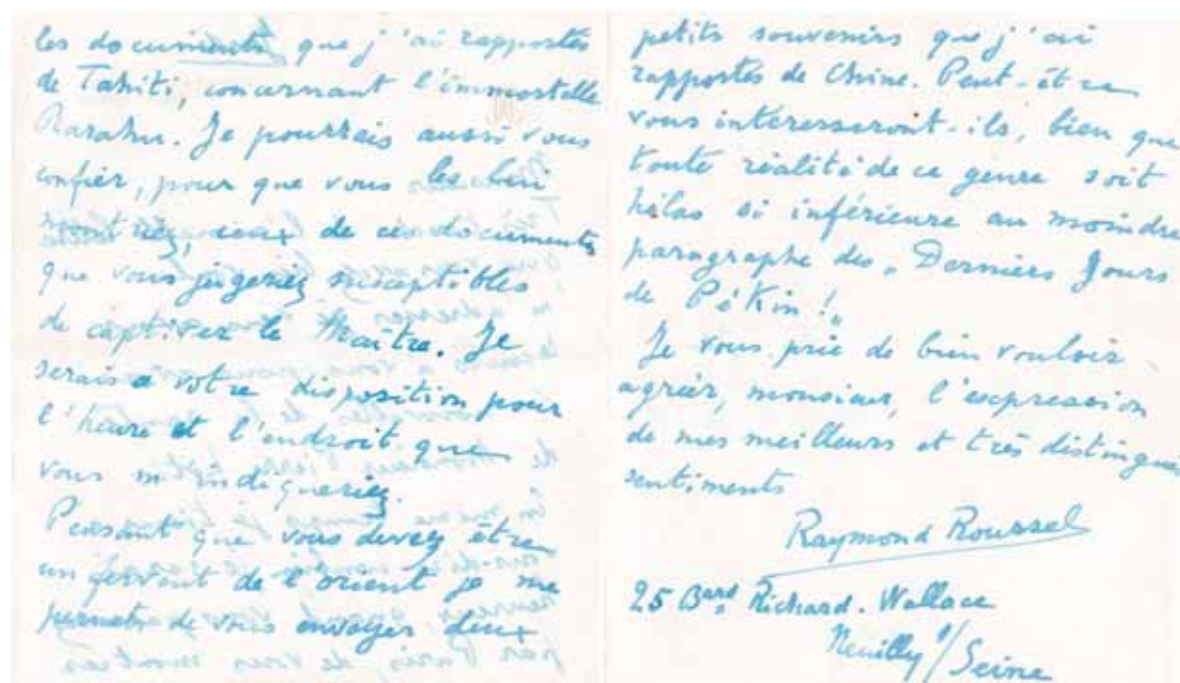 les documents que j'ai rapportés
de Tahiti, concernant l'immortelle
Rarahu. Je pourrais aussi vous
confier, pour que vous les lui
montriez, ceux de ces documents
que vous jugeriez susceptibles
de captiver le Maître. Je
serais à votre disposition pour
l'heure et l'endroit que
vous m'indiqueriez.
Pensant que vous devez être
un fervent de l'orient je me
permets de vous envoyer deux
petits souvenirs que j'ai
rapportés de Chine. Peut-être
vous intéresseront-ils, bien que
toute réalité de ce genre soit
hélas si inférieure au moindre
paragraphe des „ Derniers Jours
de Pékin !„
Je vous prie de bien vouloir
agréer, monsieur, l'expression
de mes meilleurs et très distingués
sentiments
Raymond Roussel
25 Bard Richard-Wallace
Neuilly s/Seine